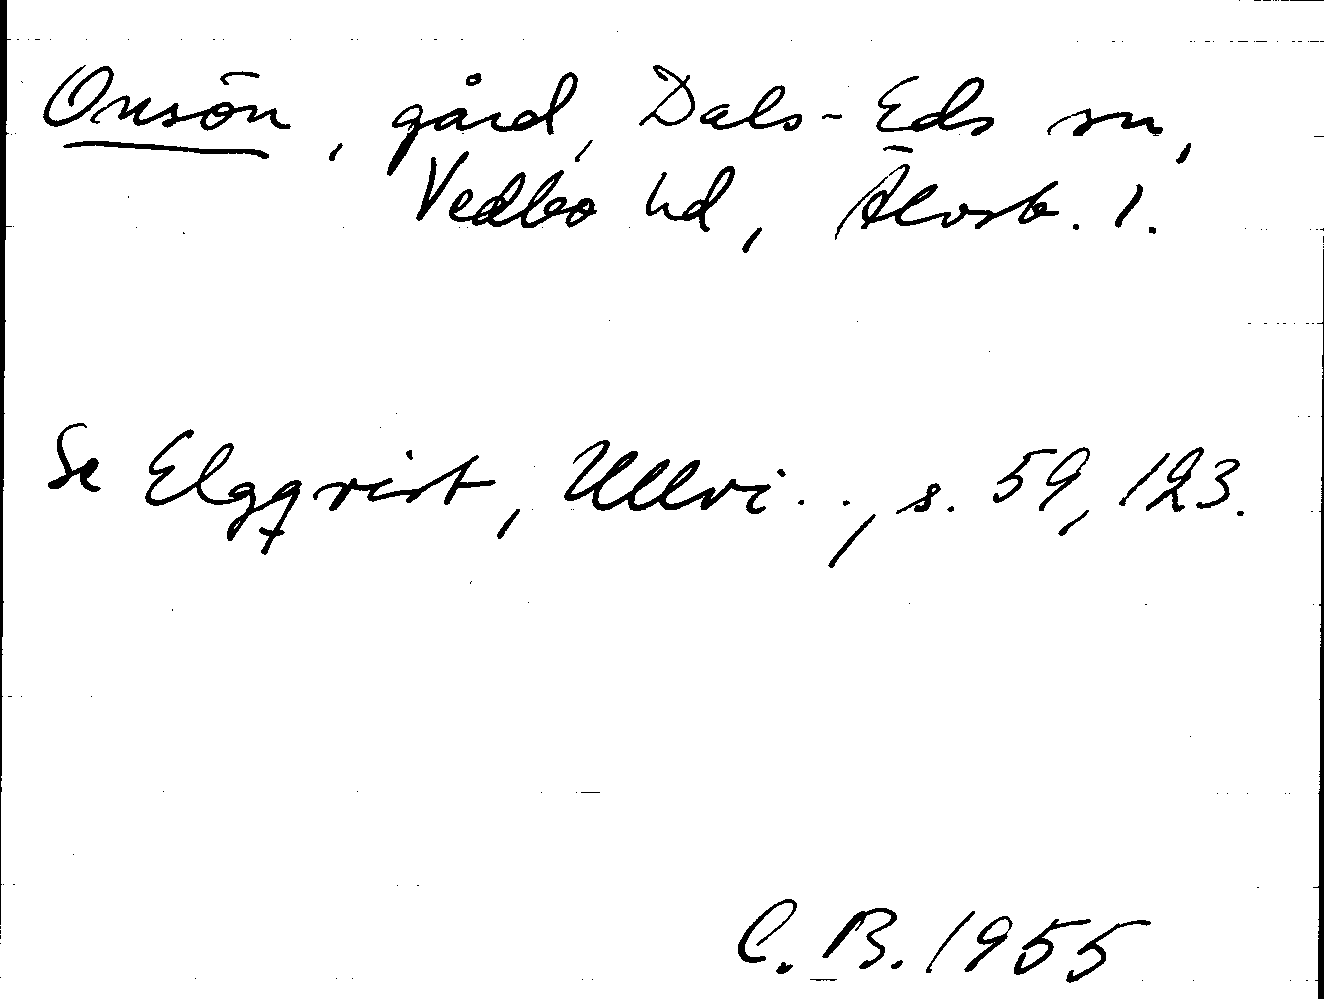 Onsön, gård, Dals-Eds sn,
Vedbo hd, Älvsb. l.
Se Elgqvist, Ullvi.., s. 59, 123.
C. B. 1955